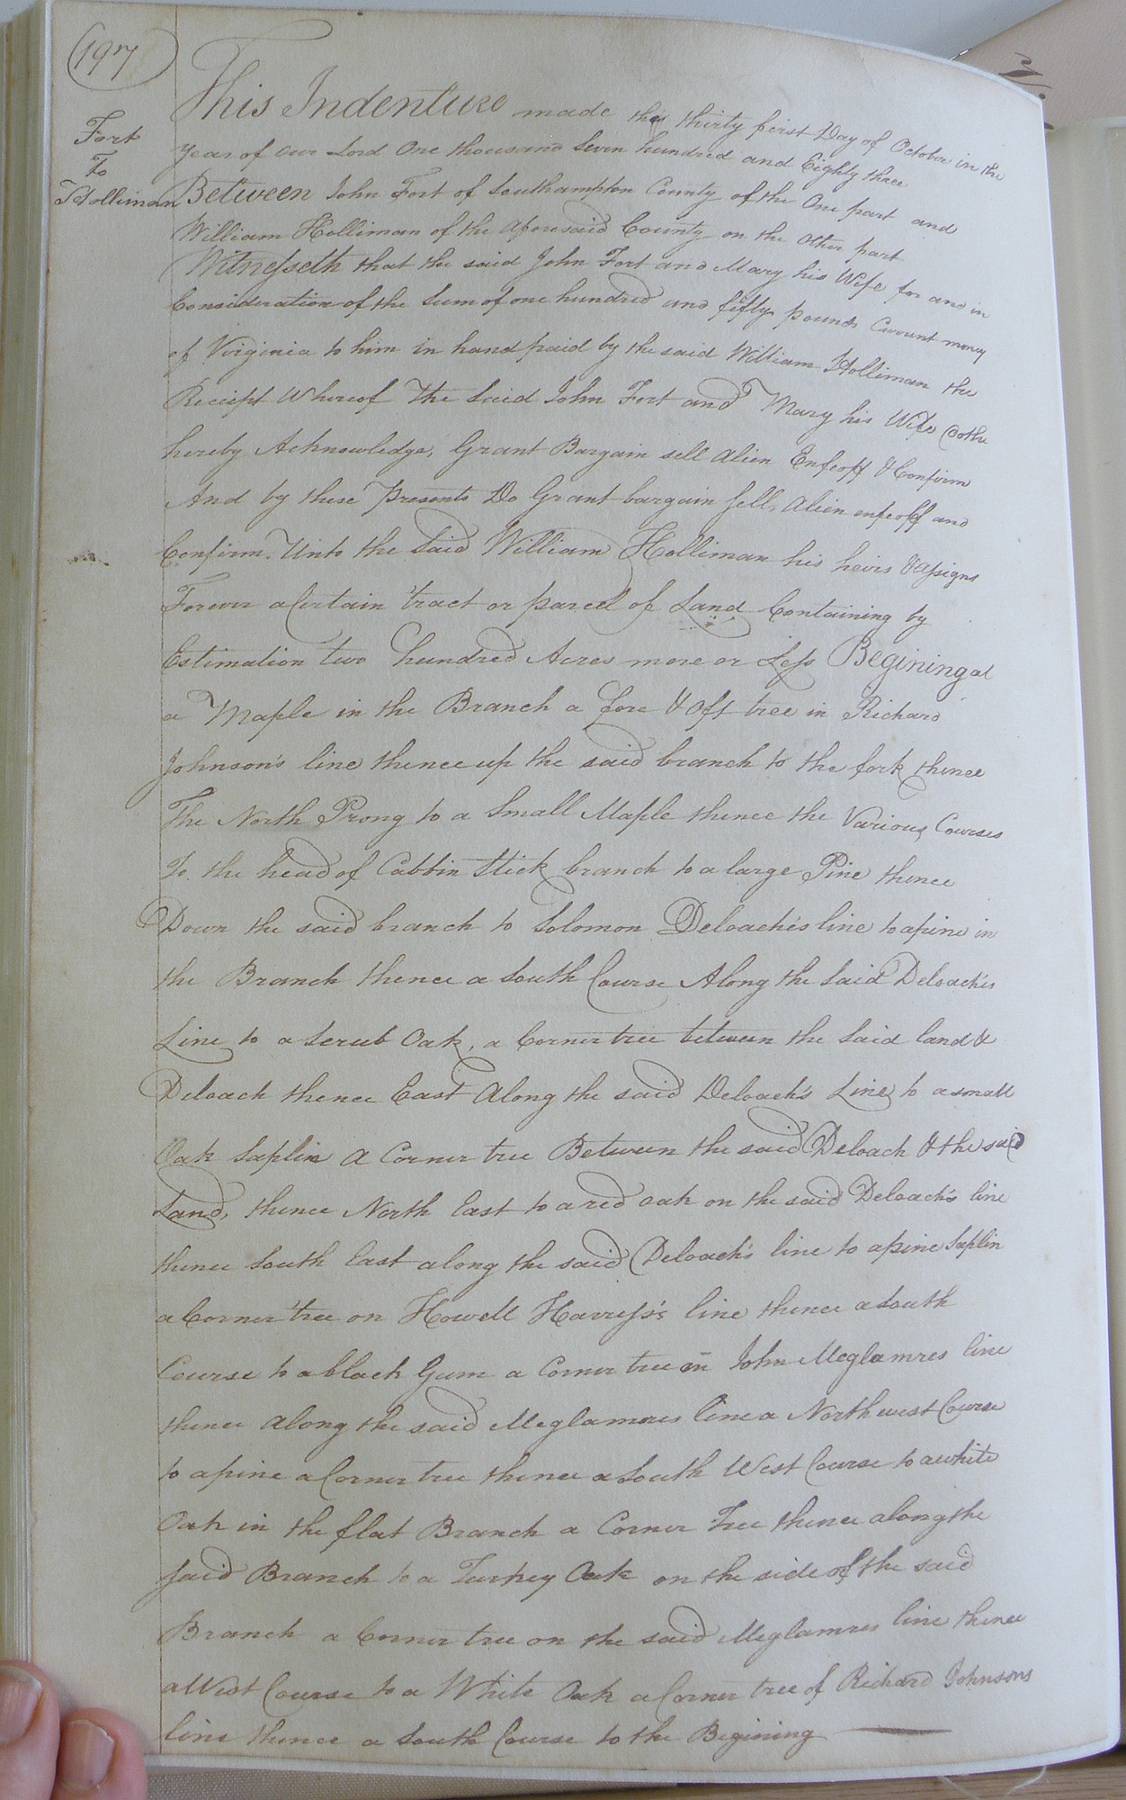 197
Fort
To
Holliman
This Indenture made this thirty first Day of October in the
Year of our Lord One thousand Seven hundred and Eighty three
Between John Fort of Southampton County of the One part and
William Holliman of the Aforesaid County on the Other part
Witnesseth that the said John Fort and Mary his Wife for and in
Consideration of the Sum of one hundred and fifty pounds Currunt money
of Virginia to him in hand paid by the said William Holliman the
Reciept Whereof The Said John Fort and Mary his Wife Dothe
hereby Acknowledge, Grant Bargain sell Alien Enfeoff & Confirm
And by these Presents Do Grant bargain Sell, Alien enfeoff and
Confirm Unto the Said William Holliman his heirs & Assigns
Forever a Certain tract or parcel of Land Containing by
Estimation two hundred Acres more or Less Begining at
a Maple in the Branch a fore & Aft tree in Richard
Johnson's line thence up the said branch to the fork thence
The North Prong to a Small Maple thence the Various Courses
To the head of Cabbin Stick branch to a large Pine thence
Down the said branch to Solomon Deloach's line to a pine in
the Branch thence a South Course Along the Said Deloach's
Line to a Scrub Oak, a Corner tree between the Said land &
Deloach thence East Along the said Deloach's Line to a small
Oak Saplin a Corner tree Between the said Deloach & the said
Land, thence North East to a red oak on the said Deloach's line
thence South East along the said Deloach's line to a pine Saplin
a Corner tree on Howell Harriss's line thence a South
Course to a black Gum a Corner tree in John Meglamres line
thence along the said Meglamres line a North west Course
to a pine a Corner tree thence a South West Course to a white
Oak in the flat Branch a Corner Tree thence along the
said Branch to a Turkey Oak on the side of the said
Branch a Corner tree on the said Meglamres line thence
a West Course to a White Oak a Corner tree of Richard Johnsons
line thence a South Course to the Begining